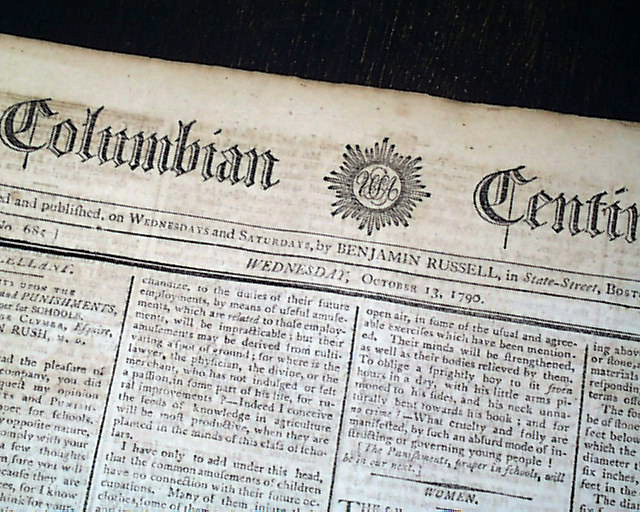 Columbian Centi
ed and publiſhed, on WEDNESDAYS and SATURDAYS, by BENJAMIN RUSSELL, in State-Street, BOST
No. 685]
WEDNESDAY, OCTOBER 13, 1790.
ELLANY.
UPON THE
and PUNISHMENTS,
per for SCHOOLS.
CLYMER, Eſquire,
N RUSH, M. D.
ad the pleaſure of
company, you did
queſt my opinion
per for ſchools.
oppoſite nature,
omply with your
a few thoughts
fore you will
cauſe they are
es, for I know
think for your
chandize, to the duties of their future
employments, by means of uſeful amuſe-
ments, which are related to thoſe employ-
ments, will be impracticable; but their
amuſements may be derived from culti-
vating a ſpot of ground; for where is the
lawyer, the phyſician, the divine, or the
merchant, who has not indulged or felt
a paſſion, in ſome part of his life, for ru-
ral improvements?—Indeed I conceive
the ſeeds of knowledge in agriculture
will be moſt productive, when they are
planted in the minds of this claſs of ſcho-
lars.
I have only to add under this head,
that the common amuſements of children
have no connection with their future oc-
cupations. Many of them injure their
clothes, ſome of them
open air, in ſome of the uſual and agree-
able exerciſes which have been mention-
ed. Their minds will be ſtrengthened,
as well as their bodies relieved by them.
To oblige a ſprightly boy to ſit ſeven
hours in a day, with his little arms pi-
nioned to his ſides, and his neck unna-
turally bent towards his book; and for
no crime!—What cruelty and folly are
manifeſted, by ſuch an abſurd mode of in-
ſtructing or governing young people!
[The Puniſhments, proper in ſchools, will
be in our next.]
WOMEN.
THE
ing abou
or ſtone,
materia
reſpondi
terms
The ſo
be of
feet belov
which the
diameter
ſix inches,
feet in the
The dia
ſix ſe